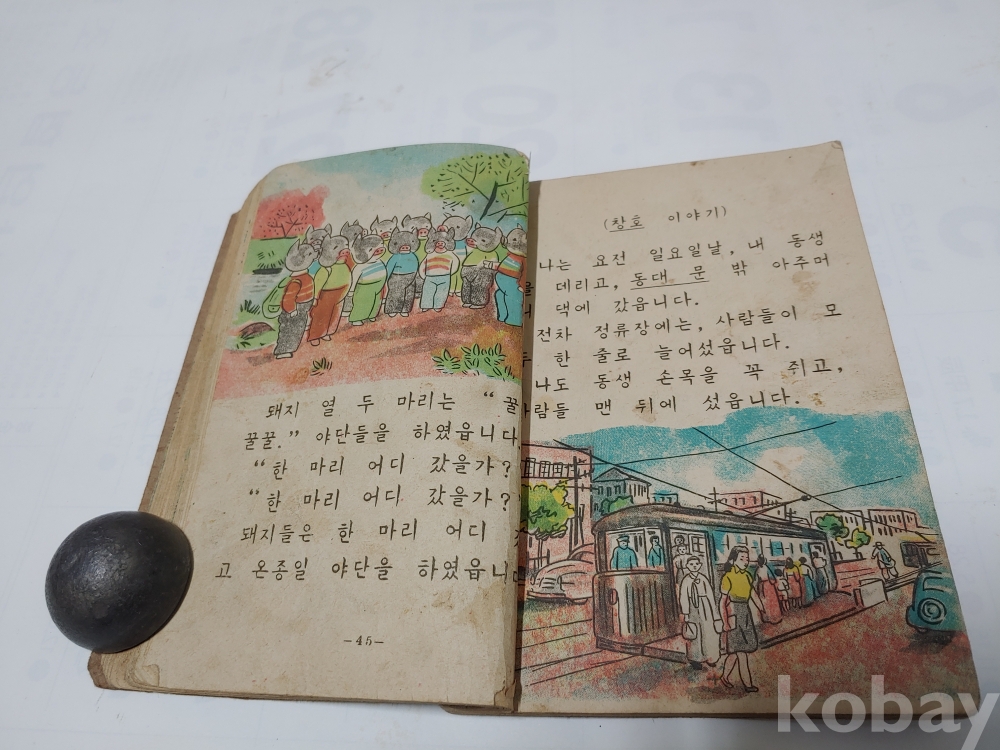 돼지 열 두 마리는 “꿀
꿀꿀.” 야단들을 하였읍니다.
“한 마리 어디 갔을가?
“한 마리 어디 갔을가?
돼지들은 한 마리 어디
고 온종일 야단을 하였읍니
—45—
(창호 이야기)
나는 요전 일요일날, 내 동생
을 데리고, 동대 문 밖 아주머
니 댁에 갔읍니다.
전차 정류장에는, 사람들이 모
두 한 줄로 늘어섰읍니다.
나도 동생 손목을 꼭 쥐고,
사람들 맨 뒤에 섰읍니다.
kobay